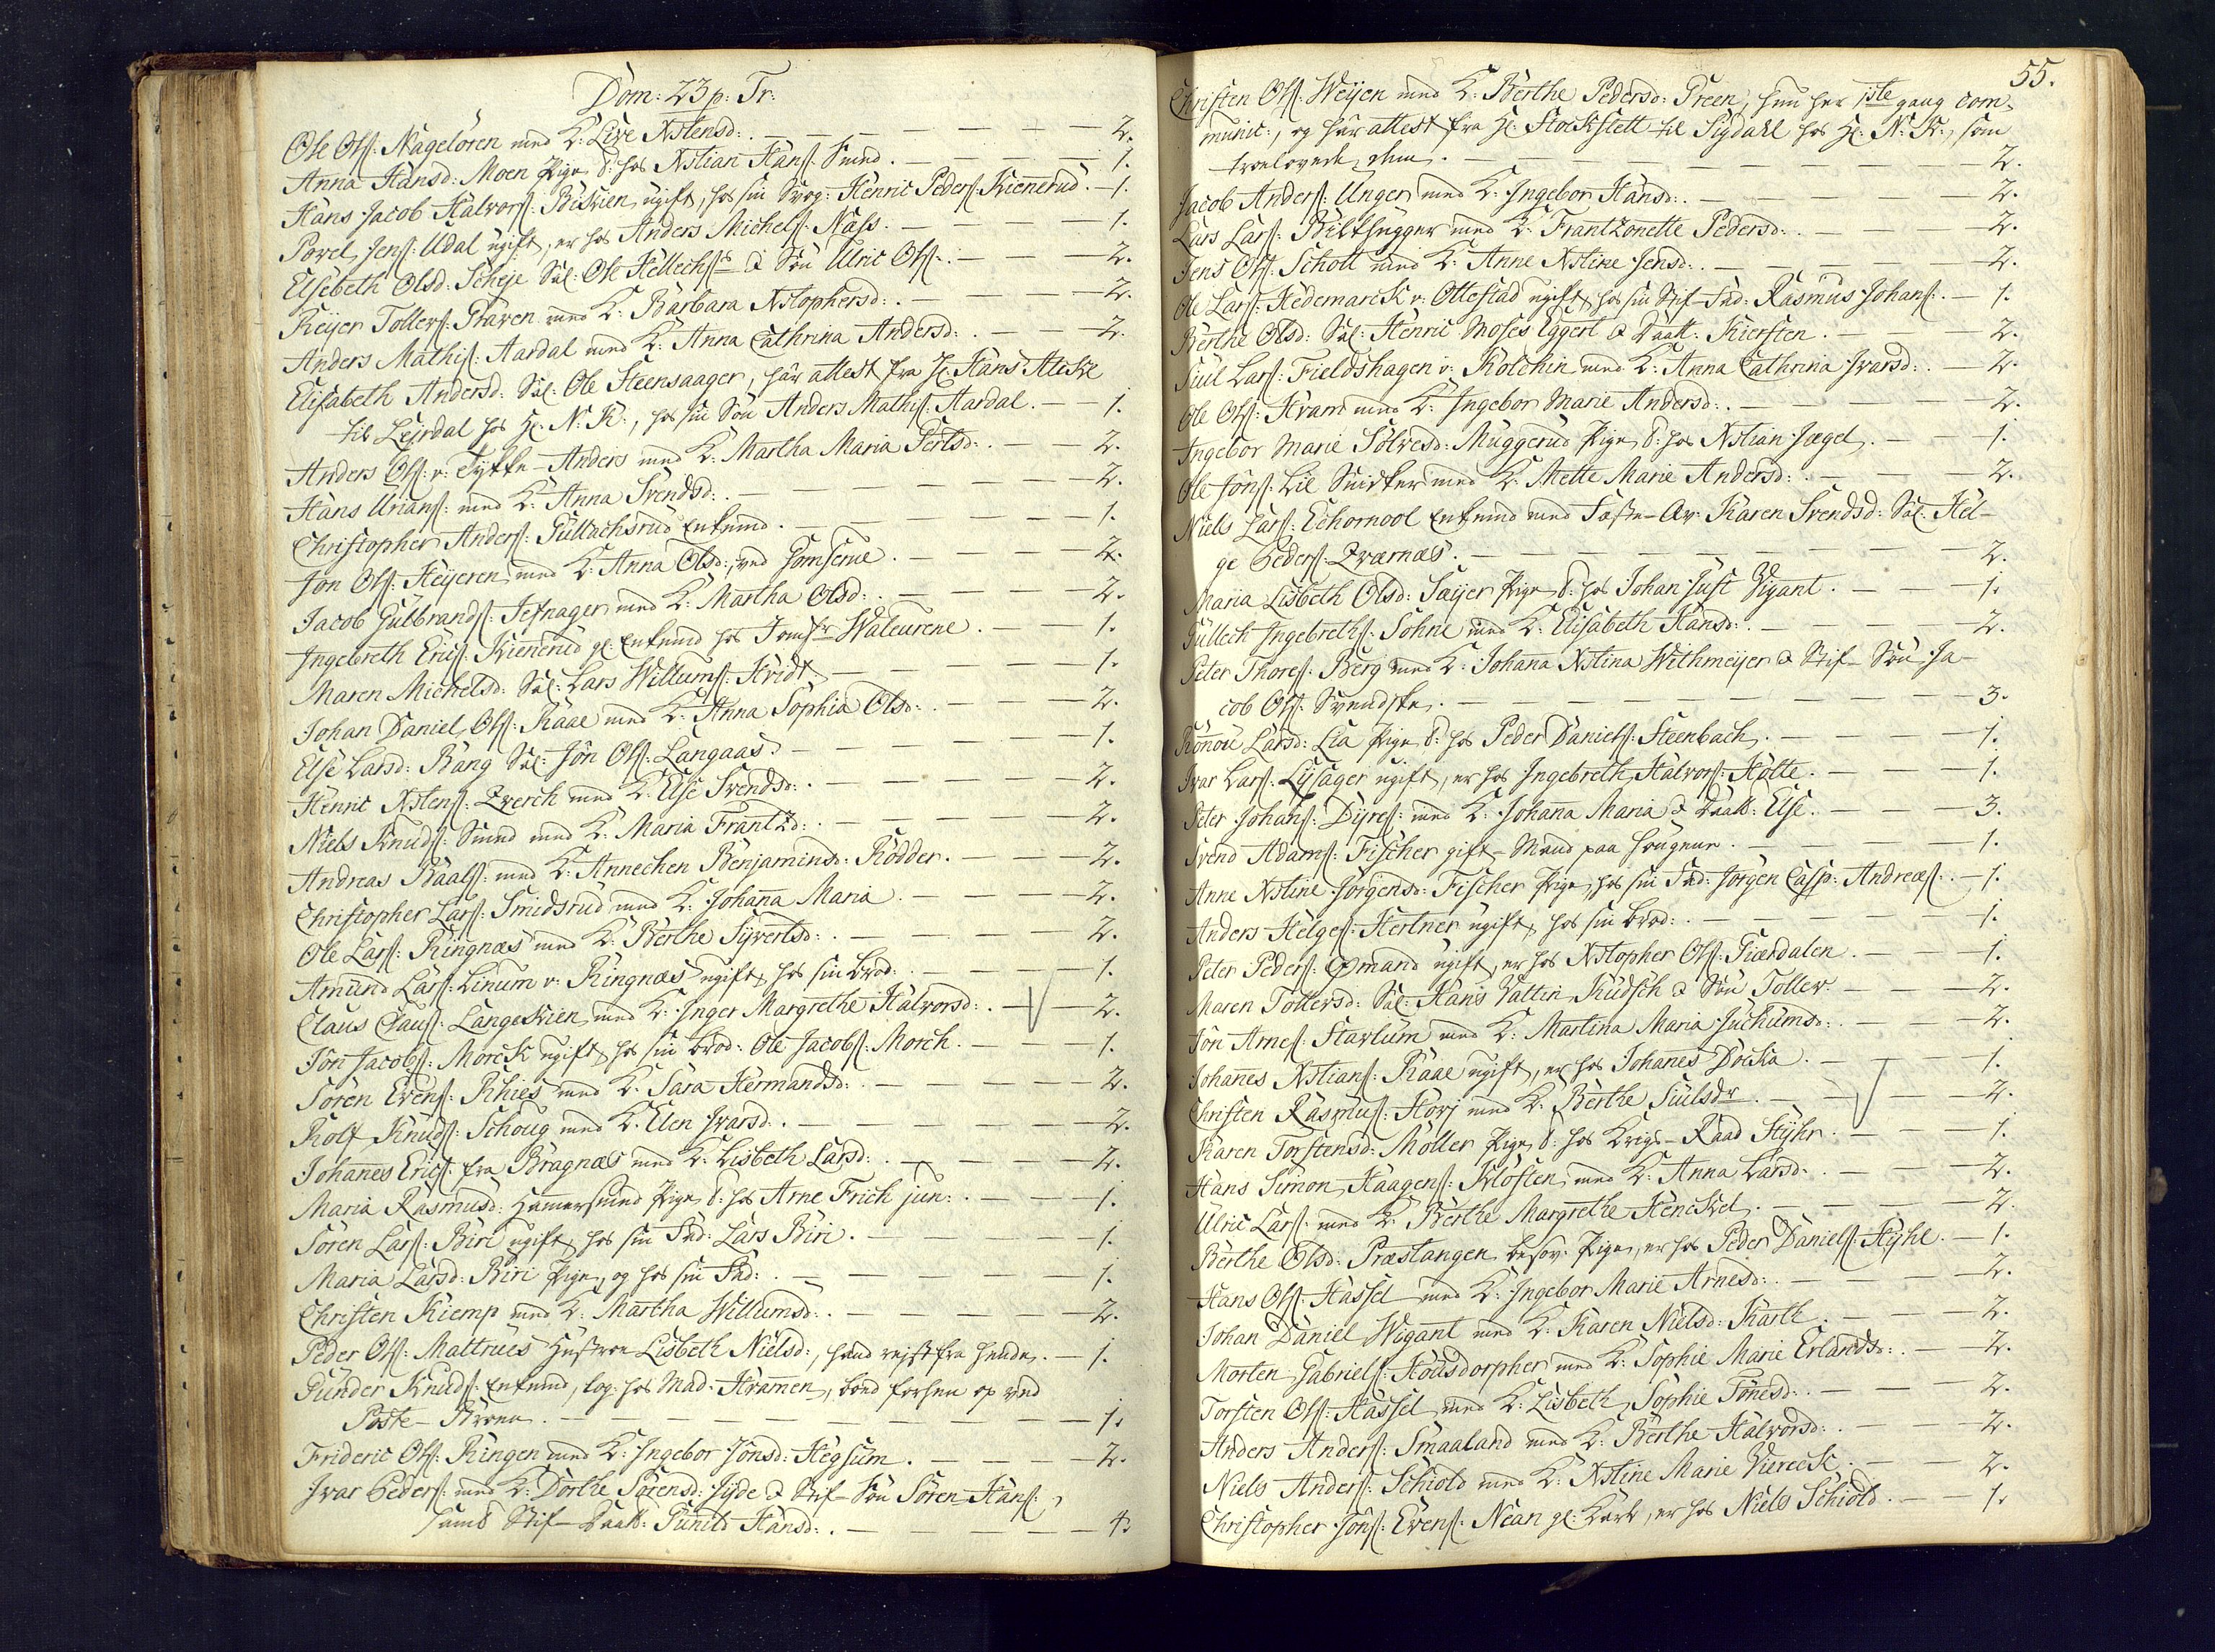 Dom: 23 p: Tr:
Ole Ols: Nageløren med K: Live Xstensd: . — 2.
Anna Hansd: Moen Pige, d: hos Xstian Hans: Smed . — 1.
Hans Jacob Halvors: Biskien ugift, hos sin Svog: Henric Peders: Kiennerud . — 1.
Povel Jens: Udal ugift, er hos Anders Michels: Næss . — 1.
Elsebeth Olsd: Scheje Sal: Ole Hellechs: & Søn Ulric Ols: . — 2.
Reijer Tollers: Graven med K: Barbara Xstophersd: . — 2.
Anders Mathis: Aardal med K: Anna Cathrina Andersd: . — 2.
Elisabeth Andersd: Sal: Ole Steensaager, har attest fra Hr: Hans Aleskl
til Lejrdal hos Hr: N: K:, hos sin Søn Anders Mathis: Aardal . — 1.
Anders Ols: v: Tykke-Anders med K: Martha Maria Pertsd: . — 2.
Hans Urians: med K: Anna Svendsd: . — 2.
Christopher Anders: Gullachsrud Enkemd . — 1.
Jon Ols: Heyeren med K: Anna Olsd:, ved Homserue . — 2.
Jacob Gulbrands: Jefnager med K: Martha Olsd: . — 2.
Ingebreth Erics: Kiennerud gl: Enkemd hos Jomfr Waleurene . — 1.
Maren Michelsd: Sal: Lars Willums: Hvidt — 1.
Johan Daniel Ols: Raae med K: Anna Sophia Olsd: . — 2.
Else Larsd: Bang Sal: Jon Ols: Langaas . — 1.
Henric Xstens: Qverch med K: Else Svendsd: . — 2.
Niels Knuds: Smed med K: Maria Frantzd: . — 2.
Andreas Baals: med K: Annechen Benjaminsd: Rødder . — 2.
Christopher Lars: Smidsrud med K: Johanna Maria . — 2.
Ole Lars: Ringnæs med K: Berthe Syvertsd: . — 2.
Amund Lars: Linum v: Ringnæs ugift, hos sin brod: . — 1.
Claus Claus: Langeskien med K: Inger Margrethe Halvorsd: . — 2.
Jon Jacobs: Morck ugift, hos sin brod: Ole Jacobs: Morch . — 1.
Søren Evens: Rhies med K: Sara Hermandsd: . — 2.
Rolf Knuds: Schoug med K: Elen Ivarsd: . — 2.
Johannes Erics: fra Bragnæs med K: Lisbeth Larsd: . — 2.
Maria Rasmusd: Hammersmed Pige, d: hos Arne Frich jun: . — 1.
Søren Lars: Biri ugift, hos sin Fad: Lars Biri . — 1.
Maria Larsd: Biri Pige, og hos sin Fad: . — 1.
Christen Kiemp med K: Martha Willumsd: . — 2.
Peder Ols: Mattrues Hustroe Lisbeth Nielsd:, hand rejst fra hende . — 1.
Gunder Knuds: Enkemd, log: hos Mad: Hramen, boed forhen op ved
Poste-Broen . — 1.
Frideric Ols: Ringen med K: Ingebor Jonsd: Hegsum . — 2.
Ivar Peders: med K: Dorthe Sørensd: Jyde & Stif-Søn Søren Hans: ,
samt Stif-Daatt: Gunild Hansd: . — 4.
55.
Christen Ols: Weyen med K: Berthe Pedersd: Green, hun her 1ste gang com-
munic:, og har attest fra Hr: Stockflett til Sigdahl hos Hr: N: K:, som
troelovede dem . — 2.
Jacob Anders: Unger med K: Ingebor Hansd: . — 2.
Lars Lars: Biltsugger med K: Frantzonette Pedersd: . — 2.
Jens Ols: Schott med K: Anne Xstine Jensd: . — 2.
Ole Lars: Hedemarck v: Ottestad ugift, hos sin Stif-Fad: Rasmus Johans: . — 1.
Berthe Olsd: Sal: Henric Moses Eggert & Daatt: Kiersten . — 2.
Juul Lars: Fieldshagen v: Kolchin med K: Anna Cathrina Ivarsd: . — 2.
Ole Ols: Hvam med K: Ingebor Marie Andersd: . — 2.
Ingebor Marie Sølvesd: Muggerud Pige, d: hos Xstian Jæger . — 1.
Ole Jons: Lie Snidker med K: Mette Marie Andersd: . — 2.
Niels Lars: Echornool Enkemd med Fæste-Qv: Karen Svendsd: Sal: Hel-
ge Peders: Qværnæs . — 2.
Maria Lisbeth Olsd: Sæyer Pige, d: hos Johan Just Wigant . — 1.
Gullech Ingebreths: Sohne med K: Elisabeth Hansd: . — 2.
Peter Thores: Berg med K: Johanna Xstina Withmeijer & Stif-Søn Ja-
cob Ols: Svendske . — 3.
Rønnou Larsd: Lia Pige, d: hos Peder Daniels: Steenbach . — 1.
Ivar Lars: Lysager ugift, er hos Ingebreth Halvors: Holte . — 1.
Peter Johans: Dyres: med K: Johana Maria & Daatt: Else . — 3.
Svend Adams: Fischer gift-Mand paa Hougene . — 1.
Anne Xstine Jørgensd: Fischer Pige, hos sin Fad: Jørgen Casp: Andreæs: . — 1.
Anders Helges: Hertner ugift, hos sin brod: . — 1.
Peter Peders: Omand ugift, er hos Xstopher Ols: Giærdalen . — 1.
Maren Tollersd: Sal: Hans Vattin Kudsch & Søn Toller . — 2.
Jon Arnes: Stavlum med K: Martina Maria Juchumsd: . — 2.
Johannes Xstians: Raae ugift, er hos Johanes Docka . — 1.
Christen Rasmus: Hovj med K: Berthe Juulsdr . — 2.
Karen Torstensd: Møller Pige, d: hos Krigs-Raad Styhr . — 1.
Hans Simon Haagens: Klosten, med K: Anna Larsd: . — 2.
Ulric Lars: med K: Berthe Margrethe Henckel . — 2.
Berthe Olsd: Præstangen besov: Pige, er hos Peder Daniels: Hyhl . — 1.
Hans Ols: Hassel med K: Ingebor Marie Arnesd: . — 2.
Johan Daniel Wigant med K: Karen Nielsd: Karth . — 2.
Morten Gabriels: Housdorpher med K: Sophie Marie Erlandsd: . — 2.
Torsten Ols: Hassel med K: Lisbeth Sophie Tønesd: . — 2.
Anders Anders: Smaaland med K: Berthe Halvorsd: . — 2.
Niels Anders: Schiold med K: Xstine Marie Viereck . — 2.
Christopher Jons: Evens: Næan gl: Karl, er hos Niels Schiold . — 1.